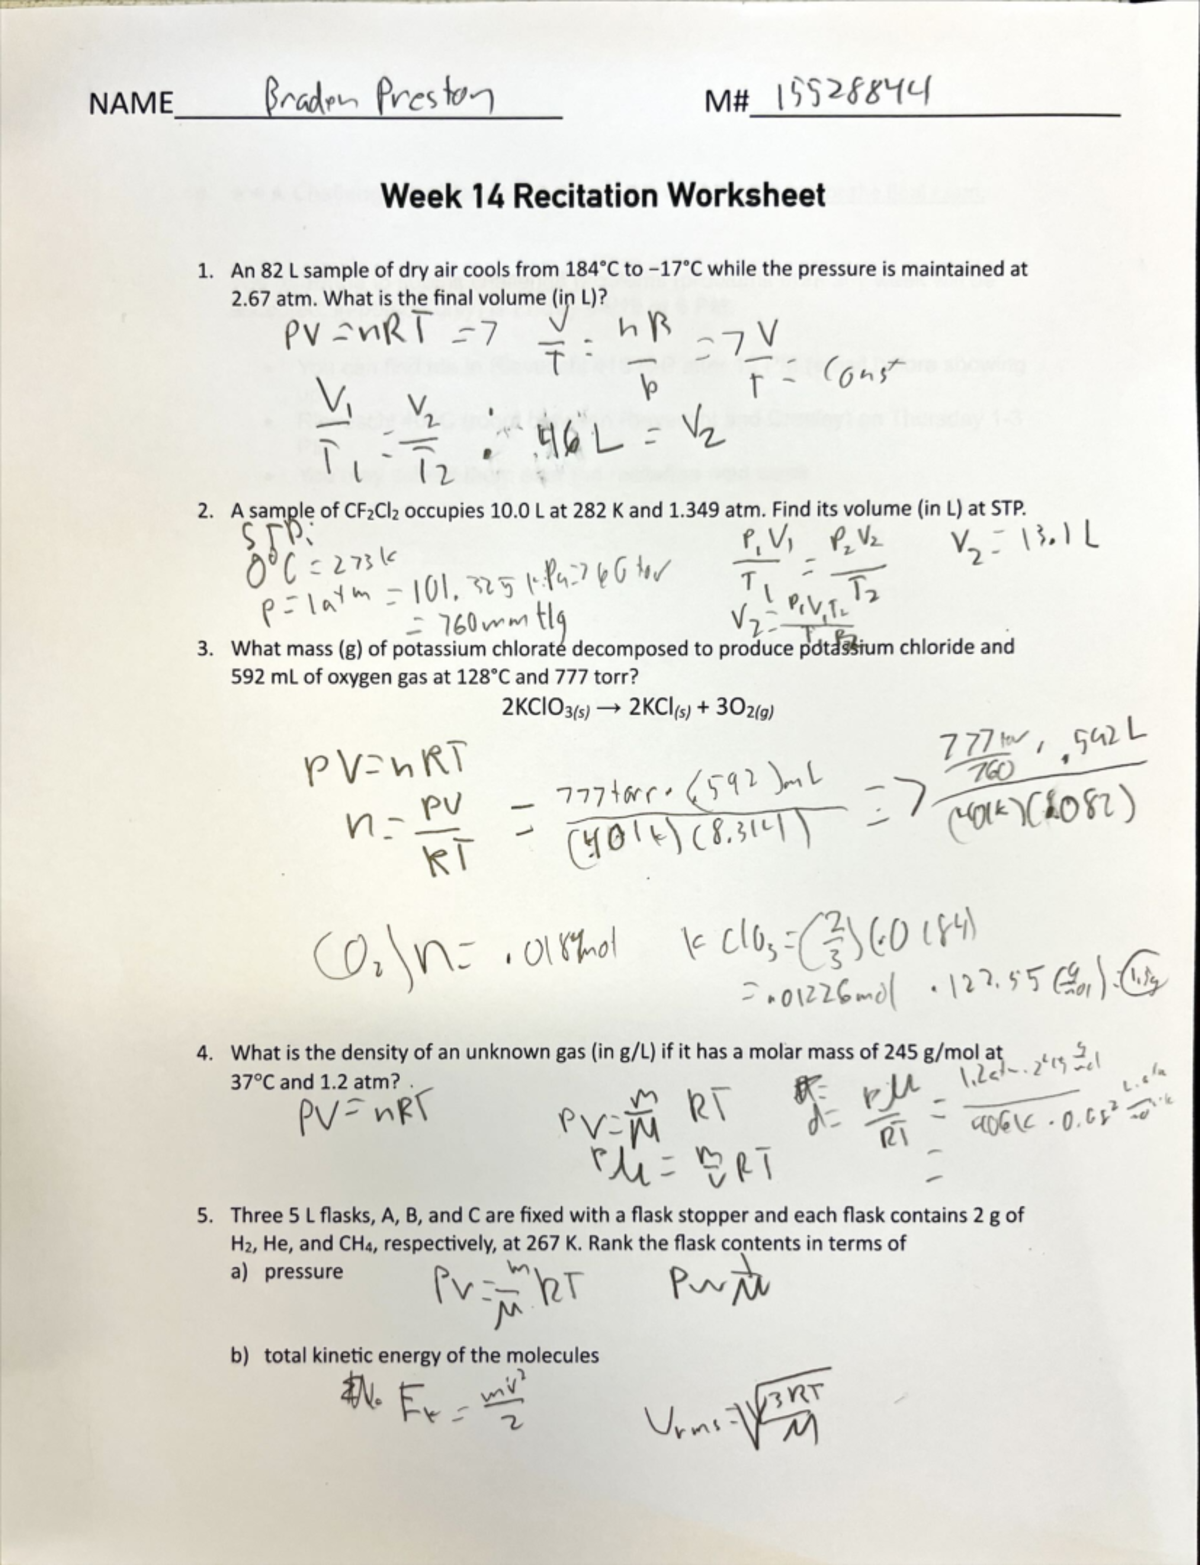 NAME Braden Preston M# 15528844
Week 14 Recitation Worksheet
1. An 82 L sample of dry air cools from 184°C to −17°C while the pressure is maintained at
2.67 atm. What is the final volume (in L)?
PV = nRT => V/T = nR/P => V/T = Const
V₁/T₁ = V₂/T₂ : 46 L = V₂
2. A sample of CF₂Cl₂ occupies 10.0 L at 282 K and 1.349 atm. Find its volume (in L) at STP.
STP:
0°C = 273 K
P₁V₁/T₁ = P₂V₂/T₂ V₂ = 13.1 L
P = 1 atm = 101.325 kPa = 760 torr
= 760 mm Hg
V₂ = P₁V₁T₂/T₁P₂
3. What mass (g) of potassium chlorate decomposed to produce potassium chloride and
592 mL of oxygen gas at 128°C and 777 torr?
2KClO₃(s) → 2KCl(s) + 3O₂(g)
PV = nRT
n = PV/RT = 777 torr · (592) mL/(401 K)(8.314) => 777 torr/760 · .592 L/(401 K)(.082)
(O₂) n = .0184 mol KClO₃ = (2/3)(.0184)
= .01226 mol · 122.55 (g/mol) = 1.5g
4. What is the density of an unknown gas (in g/L) if it has a molar mass of 245 g/mol at
37°C and 1.2 atm?
PV = nRT PV = m/M RT d = PM/RT =
PM = m/V RT =
5. Three 5 L flasks, A, B, and C are fixed with a flask stopper and each flask contains 2 g of
H₂, He, and CH₄, respectively, at 267 K. Rank the flask contents in terms of
a) pressure
PV = m/M RT P ~ 1/M
b) total kinetic energy of the molecules
Eₖ = mv²/2 Vrms = √3RT/M